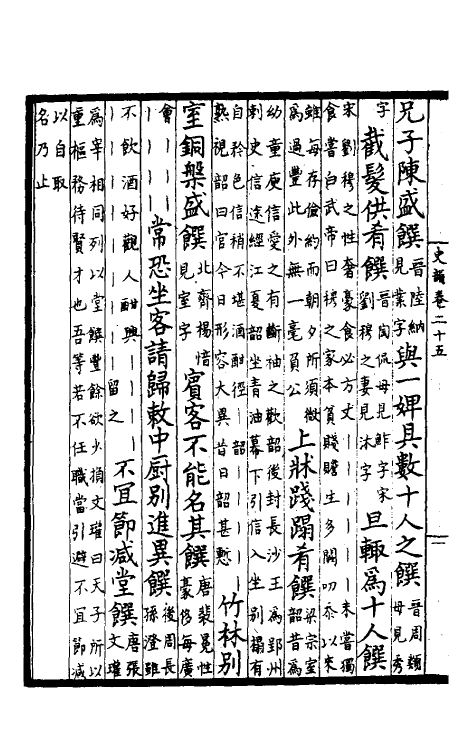 史卷二十五
兄子陳盛饌晉陸納見業字與一婢具數十人之饌晉周顗母見秀
字截髮供肴饌晉陶侃母見鮓字宋劉穆之妻見沐字旦輒爲十人饌
宋劉穆之性奢豪食必方丈｜｜｜｜｜未嘗獨
食嘗白武帝曰穆之家本貧賤贍生多闕叨忝以來
雖每存儉約而朝夕所須微爲過豐此外無一毫負公上牀踐蹋肴饌梁宗室韶昔爲
幼童庾信愛之有斷袖之歡韶後封長沙王爲郢州
刺史信途經江夏韶坐青油幕下引信入坐别榻有
自矜色信稍不堪酒酣徑｜韶｜｜｜｜
熟視韶曰官今日形容大異昔日韶甚慙竹林别
室銅槃盛饌北齊楊愔見室字賓客不能名其饌唐裴冕性豪侈每廣
會｜｜｜｜｜｜常恐坐客請歸敕中厨别進異饌後周長孫澄雖
不飲酒好觀人酣興｜｜｜｜｜｜｜｜｜｜｜留之不宜節減堂饌唐張文瓘
爲宰相同列以堂饌豐餘欲少損文瓘曰天子所以
重樞務待賢才也吾等若不任職當引避不宜節減
以自取
名乃止